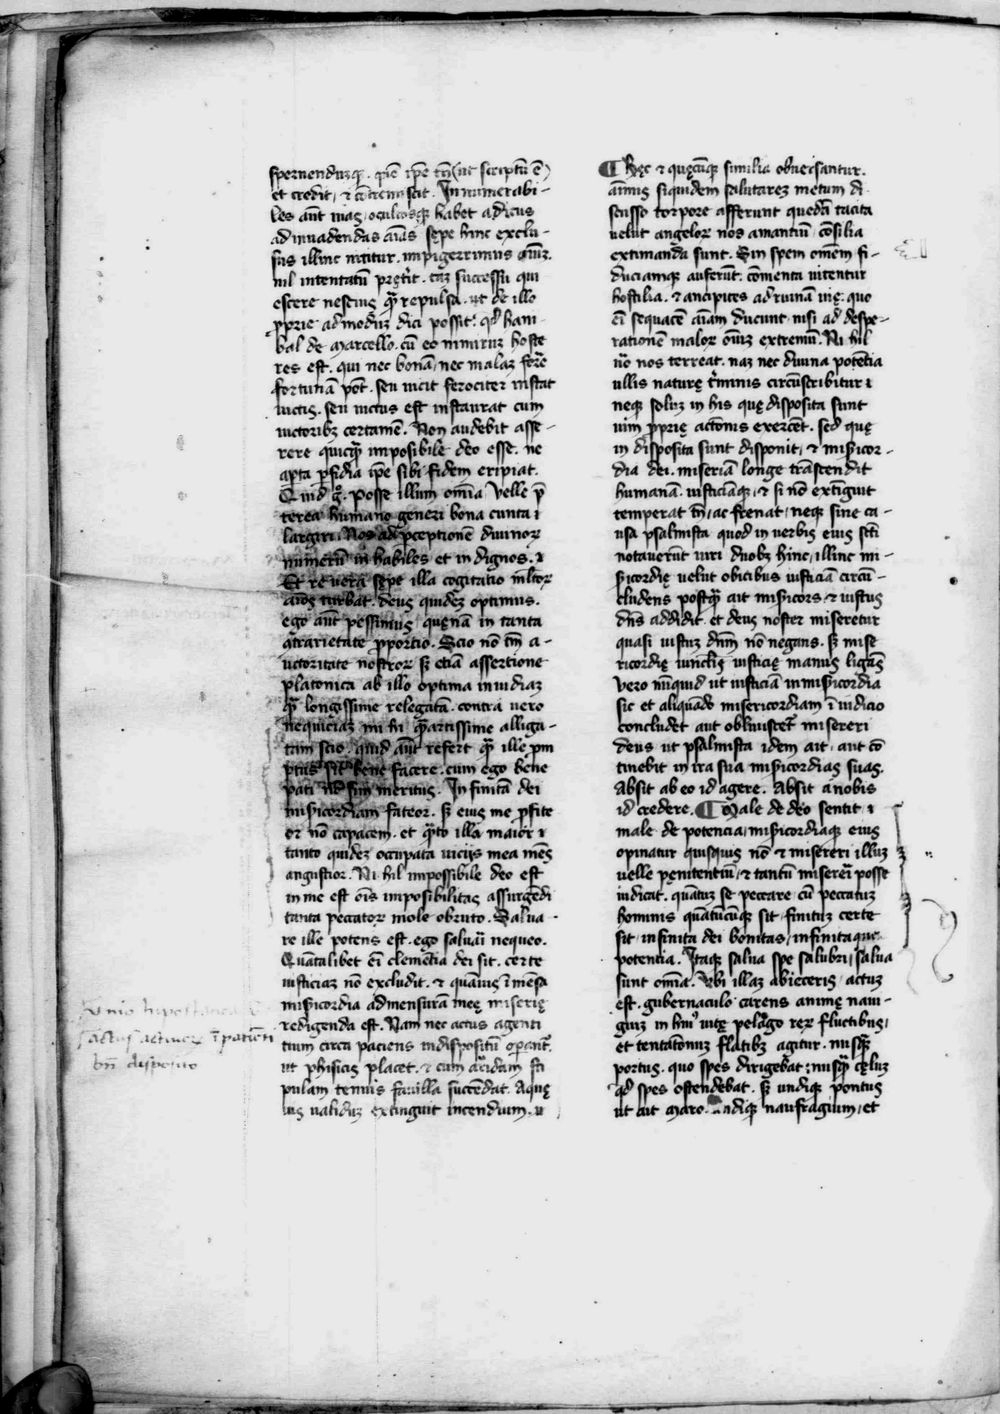 spernendūqꝫ. quē ip̄e tn̄ (ut scriptū ē)
et credit, ⁊ cōtremiscit. Innumerabi-
les aūt uias, occultosqꝫ habet aditus
ad inuadendas aīas sepe hinc exclu-
sus illinc nititur. impigerrimus oīuꝫ.
nil intentatū pret̄it. taꝫ successu qui
escere nescius qꝫ repulsa. ut de illo
ꝓprie admoduꝫ dici possit: qđ hani-
bal de marcello. cū eo nimiruꝫ hoste
res est. qui nec bonā, nec malaꝫ ferre
fortunā pōt. seu uicit ferociter instat
uictis. seu uictus est instaurat cum
uictoribꝫ certamē. Non audebit asse-
rere quicqꝫ imposibile deo esse. ne
aꝑta ꝑfidia ip̄e sibi fidem eripiat.
Quid gͦ. Posse illum om̄ia Velle p̄
terea humano generi bona cunta ⁊
largiri. Nos ad ꝑceptionē diuinoꝝ
munerū inhabiles et indignos. ⁊
Et re uera sepe illa cogitatio ml̄toꝝ
aīos turbat. deus quideꝫ optimus.
ego aūt pessimus, quęnā in tanta
ɔ̄trarietate ꝓportio. Scio nō tm̄ a-
uctoritate nostroꝝ sꝫ etiā assertione
platonica ab illo optimo inuidiaꝫ
qꝫ longissime relegatā. contra uero
nequiciaꝫ mihi qꝫ artissime alliga-
tam scio. quid aūt refert qꝫ ille pm
ptus sit bene facere. cum ego bene
pati nō sim meritus. Infinitā dei
mīsicordiam fateor. sꝫ eius me ꝓfite
or nō capacem. et qͣto illa maior ⁊
tanto quidez occupata uiciis mea mēs
angustior. Nihil impossibile deo est
in me est oīs imposibilitas assurgēdi
tanta peccatoꝝ mole obruto. Salua-
re ille potens est. ego saluari nequeo.
Quātalibet ei clemētia dei sit. certe
iusticiaꝫ nō excludit. ⁊ quāuis īmēsa
mīsicordia ad mensurā meę miserię
redigenda est. Nam nec actus agenti
tium circa paciens indispositū oꝑant̄.
ut phisicis placet. ⁊ cum aridam sti
pulam tenuis fauilla succendat. Aquę
uis ualiduꝫ extinguit incendium. ⁊
¶ hęc ⁊ quęcūqꝫ similia obuersantur.
aīmis siquidem salutareꝫ metum di
scusso torpore afferunt quedā tacita
uelut angeloꝝ nos amantiū, cōsilia
extimanda sunt. Sin spem omēm fi-
duciamqꝫ auferūt. cōmenta nitentur
hostilia. ⁊ ancipites ad ruinā uię. quo
ei sequacē aīam ducunt nisi ad despe-
rationē maloꝝ oīuꝫ extremū. Nihil
uō nos terreat. naꝫ nec diuina potētia
ullis naturę t̄minis circūscribitur ⁊
neqꝫ soluꝫ in his quę disposita sunt
uim ꝓprię actōnis exercet. sed quę
indisposita sunt disponit, ⁊ misericor-
dia dei. miseriā longe trāscendit
humanā. iusticiāqꝫ, ⁊ si nō extinguit
temperat tn̄, ac frenat, neqꝫ sine ca-
usa psalmista quod in uerbis eius sc̄ti
notauerūt uiri duobꝫ hinc, illinc mi-
sicordię uelut obicibus iusticiā circū-
cludens postqꝫ ait misericors, ⁊ iustus
dn̄s addidit. et deus noster miseretur
quasi iustuꝫ dn̄m nō negans. sꝫ mise
ricordię uinclis iusticię manus ligās
Vero nūquid ut iusticiā in mīsicordia
sic et aliquādo misericordiam ī iudicio
concludet aut obliuiscet̄ misereri
deus ut psalmista idem ait. aut cō
tinebit in ira sua mīsicordias suas.
Absit ab eo id agere. Absit a nobis
id credere. ¶ Male de deo sentit ⁊
male de potencia, mīsicordiaqꝫ eius
opinatur quisquis nō ⁊ misereri illuꝫ
uelle pęnitentiū, ⁊ tantū misereri posse
iudicat. quātuꝫ se peccare. cū peccatuꝫ
hominis quātūcūqꝫ sit, finituꝫ certe
sit, infinita dei bonitas, infinitaque
potentia. Itaqꝫ salua spe salubri, salua
sunt om̄ia. Vbi illaꝫ abieceris, actuꝫ
est. gubernaculo carens animę naui-
giuꝫ in huī uitę pelago reꝝ fluctibus,
et tentatōnuꝫ flatibꝫ agitur. nusqꝫ
portus, quo spes dirigebat; nusqꝫ cęluꝫ
qđ spes ostendebat. sꝫ undiqꝫ pontus
ut ait maro. undiqꝫ naufragium, et
actus actiuoꝝ ī patiēti
bn̄ disposito